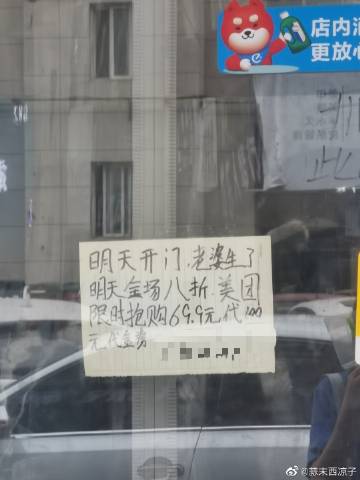 店内消
更放心
此
明天开门,老婆生了
明天全场八折,美团
限时抢购69.9元代100
元代金券
@蒜末西凉子